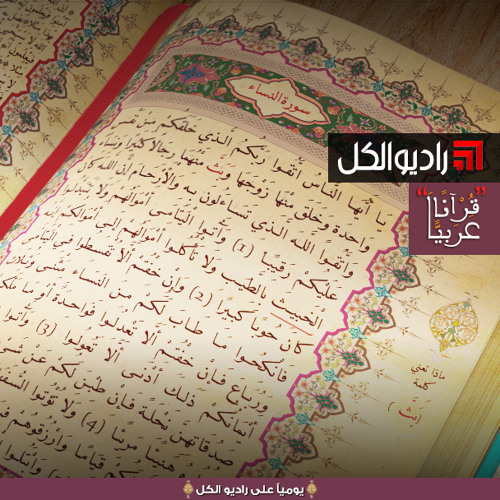 سورة النساء
يا أيها الناس اتقوا ربكم الذي خلقكم من نفس
واحدة وخلق منها زوجها وبث منهما رجالا كثيرا ونساء
واتقوا الله الذي تساءلون به والأرحام إن الله كان
عليكم رقيبا (1) وآتوا اليتامى أموالهم ولا تتبدلوا
الخبيث بالطيب ولا تأكلوا أموالهم إلى أموالكم إنه
كان حوبا كبيرا (2) وإن خفتم ألا تقسطوا في اليتامى
فانكحوا ما طاب لكم من النساء مثنى وثلاث
ورباع فإن خفتم ألا تعدلوا فواحدة أو ما ملكت
أيمانكم ذلك أدنى ألا تعولوا (3) وآتوا
صدقاتهن نحلة فإن طبن لكم عن شيء
هنيئا مريئا (4) ولا تؤتوا السفهاء
قياما وارزقوهم
وابتلوا
راديو الكل
"قُرْآنًا
عَرَبِيًّا"
ماذا تعني
كلمة
(بَثَّ)
يومياً على راديو الكل